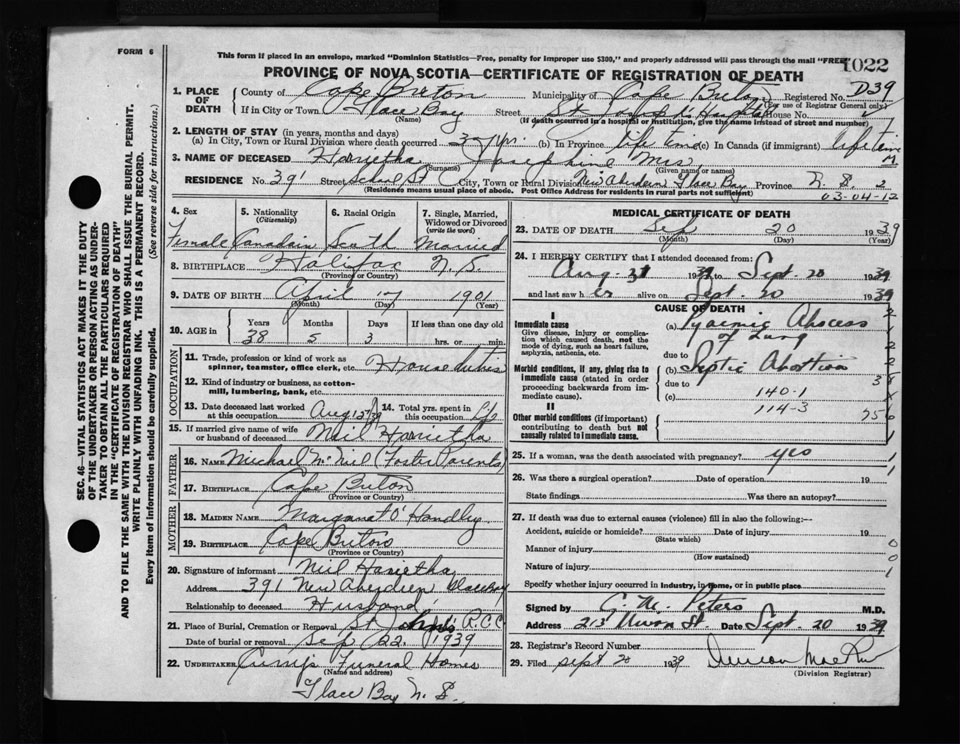 FORM 6
This form if placed in an envelope, marked "Dominion Statistics—Free, penalty for improper use $300," and properly addressed will pass through the mail "FREE"
1022
PROVINCE OF NOVA SCOTIA—CERTIFICATE OF REGISTRATION OF DEATH
1. PLACE OF DEATH County of Cape Breton Municipality of Cape Breton Registered No. D39
(For use of Registrar General only)
If in City or Town Glace Bay Street St Joseph's Hospital House No.
(Name) (If death occurred in a hospital or institution, give the name instead of street and number)
2. LENGTH OF STAY (in years, months and days)
(a) In City, Town or Rural Division where death occurred 37 yrs. (b) In Province life time (c) In Canada (if immigrant) life time
3. NAME OF DECEASED Harietha Josephine Mrs. M
(Surname) (Given name or names)
RESIDENCE No. 391 Street School St City, Town or Rural Division New Aberdeen Glace Bay Province N. S. 2
(Residence means usual place of abode. Post Office Address for residents in rural parts not sufficient) 03-04-12
4. Sex Female
5. Nationality (Citizenship) Canadain
6. Racial Origin Scoth
7. Single, Married, Widowed or Divorced (write the word) Married
8. BIRTHPLACE Halifax N. S.
(Province or Country)
9. DATE OF BIRTH April 17 1901
(Month) (Day) (Year)
10. AGE in Years 38 Months 5 Days 3 If less than one day old hrs. or min.
OCCUPATION
11. Trade, profession or kind of work as spinner, teamster, office clerk, etc. House duties
12. Kind of industry or business, as cotton-mill, lumbering, bank, etc.
13. Date deceased last worked at this occupation Aug 15/39 14. Total yrs. spent in this occupation Life
15. If married give name of wife or husband of deceased Neil Harietha
FATHER
16. NAME Michael McNeil (Foster Parents)
17. BIRTHPLACE Cape Breton
(Province or Country)
MOTHER
18. MAIDEN NAME Margaret O'Handley
19. BIRTHPLACE Cape Breton
(Province or Country)
20. Signature of informant Neil Harietha
Address 391 New Aberdeen Glace Bay
Relationship to deceased Husband
21. Place of Burial, Cremation or Removal St Johns R.C.C
Date of burial or removal Sep 22 1939
22. UNDERTAKER Currys Funeral Homes
(Name and address)
Glace Bay N. S.
MEDICAL CERTIFICATE OF DEATH
23. DATE OF DEATH Sep 20 1939
(Month) (Day) (Year)
24. I HEREBY CERTIFY that I attended deceased from:
Aug. 31 1939 to Sept. 20 1939
and last saw her alive on Sept. 20 1939
CAUSE OF DEATH
I
Immediate cause
Give disease, injury, or complication which caused death, not the mode of dying, such as heart failure, asphyxia, asthenia, etc.
(a) Pyaemic Abscess of Lung
due to
Morbid conditions, if any, giving rise to immediate cause (stated in order proceeding backwards from immediate cause).
(b) Septic Abortion
due to
(c) 140-1
114-3
II
Other morbid conditions (if important) contributing to death but not causally related to immediate cause.
25. If a woman, was the death associated with pregnancy? yes
26. Was there a surgical operation? Date of operation 19
State findings Was there an autopsy?
27. If death was due to external causes (violence) fill in also the following:—
Accident, suicide or homicide? Date of injury 19
(State which)
Manner of injury
(How sustained)
Nature of injury
Specify whether injury occurred in Industry, in Home, or in public place
Signed by G. M. Peters M.D.
Address 213 Union St. Date Sept. 20 1939
28. Registrar's Record Number
29. Filed Sept 20 1939
(Division Registrar)
SEC. 46—VITAL STATISTICS ACT MAKES IT THE DUTY
OF THE UNDERTAKER OR PERSON ACTING AS UNDERTAKER TO OBTAIN ALL THE PARTICULARS REQUIRED
IN THE "CERTIFICATE OF REGISTRATION OF DEATH"
AND TO FILE THE SAME WITH THE DIVISION REGISTRAR WHO SHALL ISSUE THE BURIAL PERMIT.
WRITE PLAINLY WITH UNFADING INK. THIS IS A PERMANENT RECORD.
Every item of information should be carefully supplied. (See reverse side for instructions.)